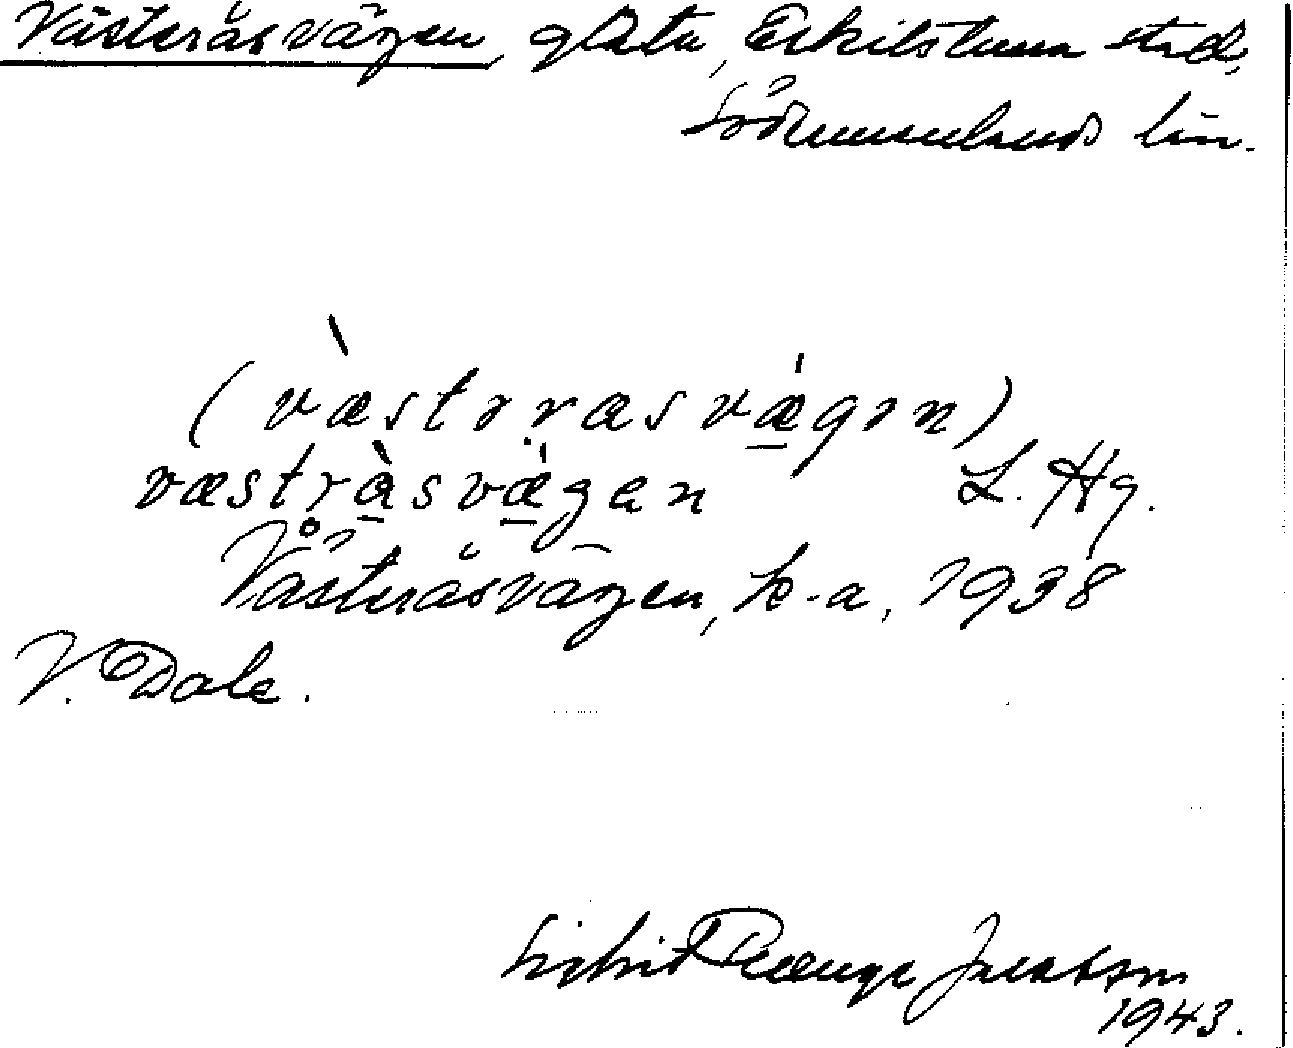 Västeråsvägen, gata, Eskilstuna stad,
Södermanlands län.
(v̀æstərasvǽ̱gən)
væstrà̱svæ̱̀gan L. Hg.
Västeråsvägen, k-a, 1938
V. Dale.
Sigrid Jacobson
1943.